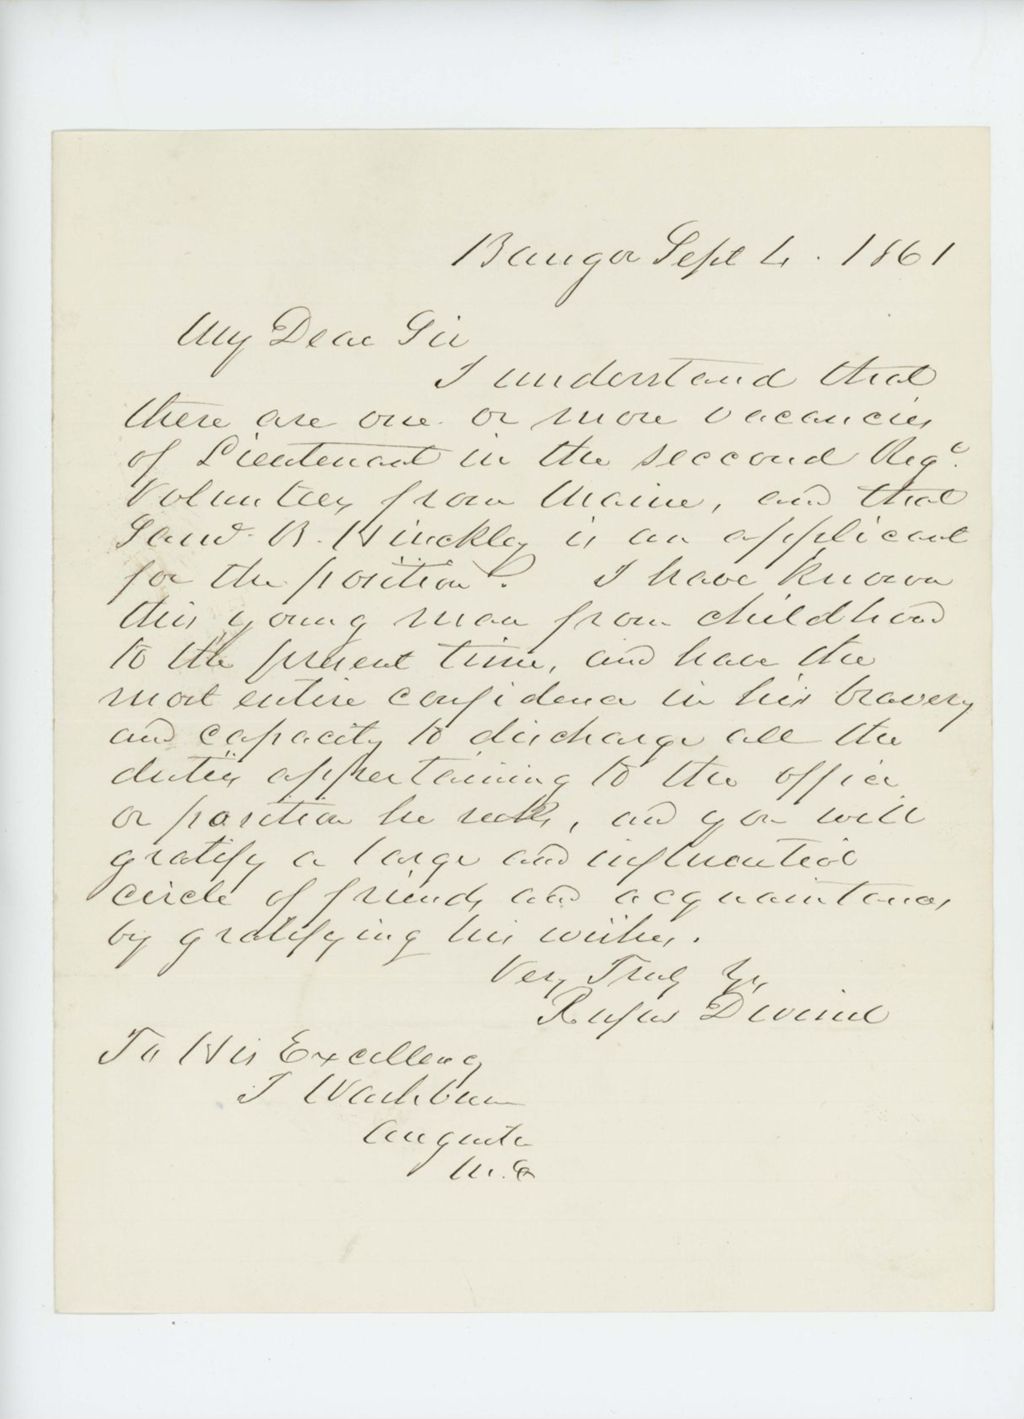 Bangor Sept 4. 1861
My Dear Sir
I understand that
there are one or more vacancies
of Lieutenant in the seccond Regt.
Volunteers from Maine, and that
Saml. B. Hinckley is an applicant
for the position. I have known
this young man from childhood
to the present time, and have the
most entire confidence in his bravery
and capacity to discharge all the
duties appertaining to the office
or position he seeks, and you will
gratify a large and influential
circle of friends and acquaintances
by gratifying his wishes.
Very Truly Yrs
Rufus Dwinel
To His Excellency
I Washburn
Augusta
Me